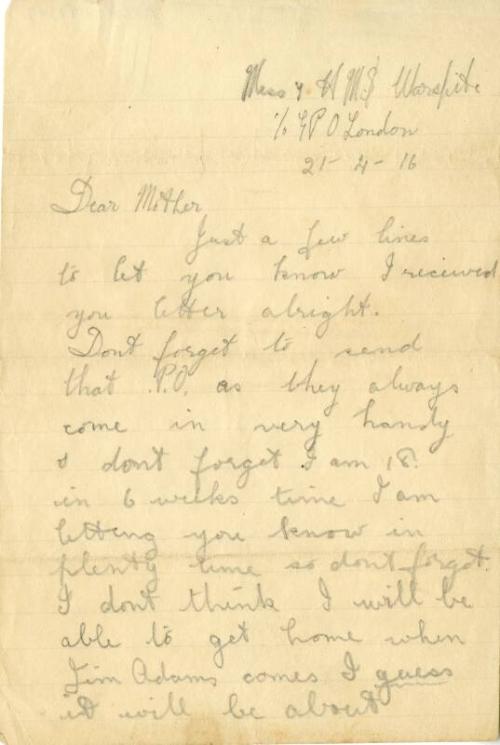 Mess 4 HMS Warspite
c/o GPO London
21-4-16
Dear Mother
Just a few lines
to let you know I received
you letter alright.
Dont forget to send
that P.O. as they always
come in very handy
& dont forget I am 18
in 6 weeks time I am
letting you know in
plenty time so dont forget.
I dont think I will be
able to get home when
Jim Adams comes I guess
it will be about